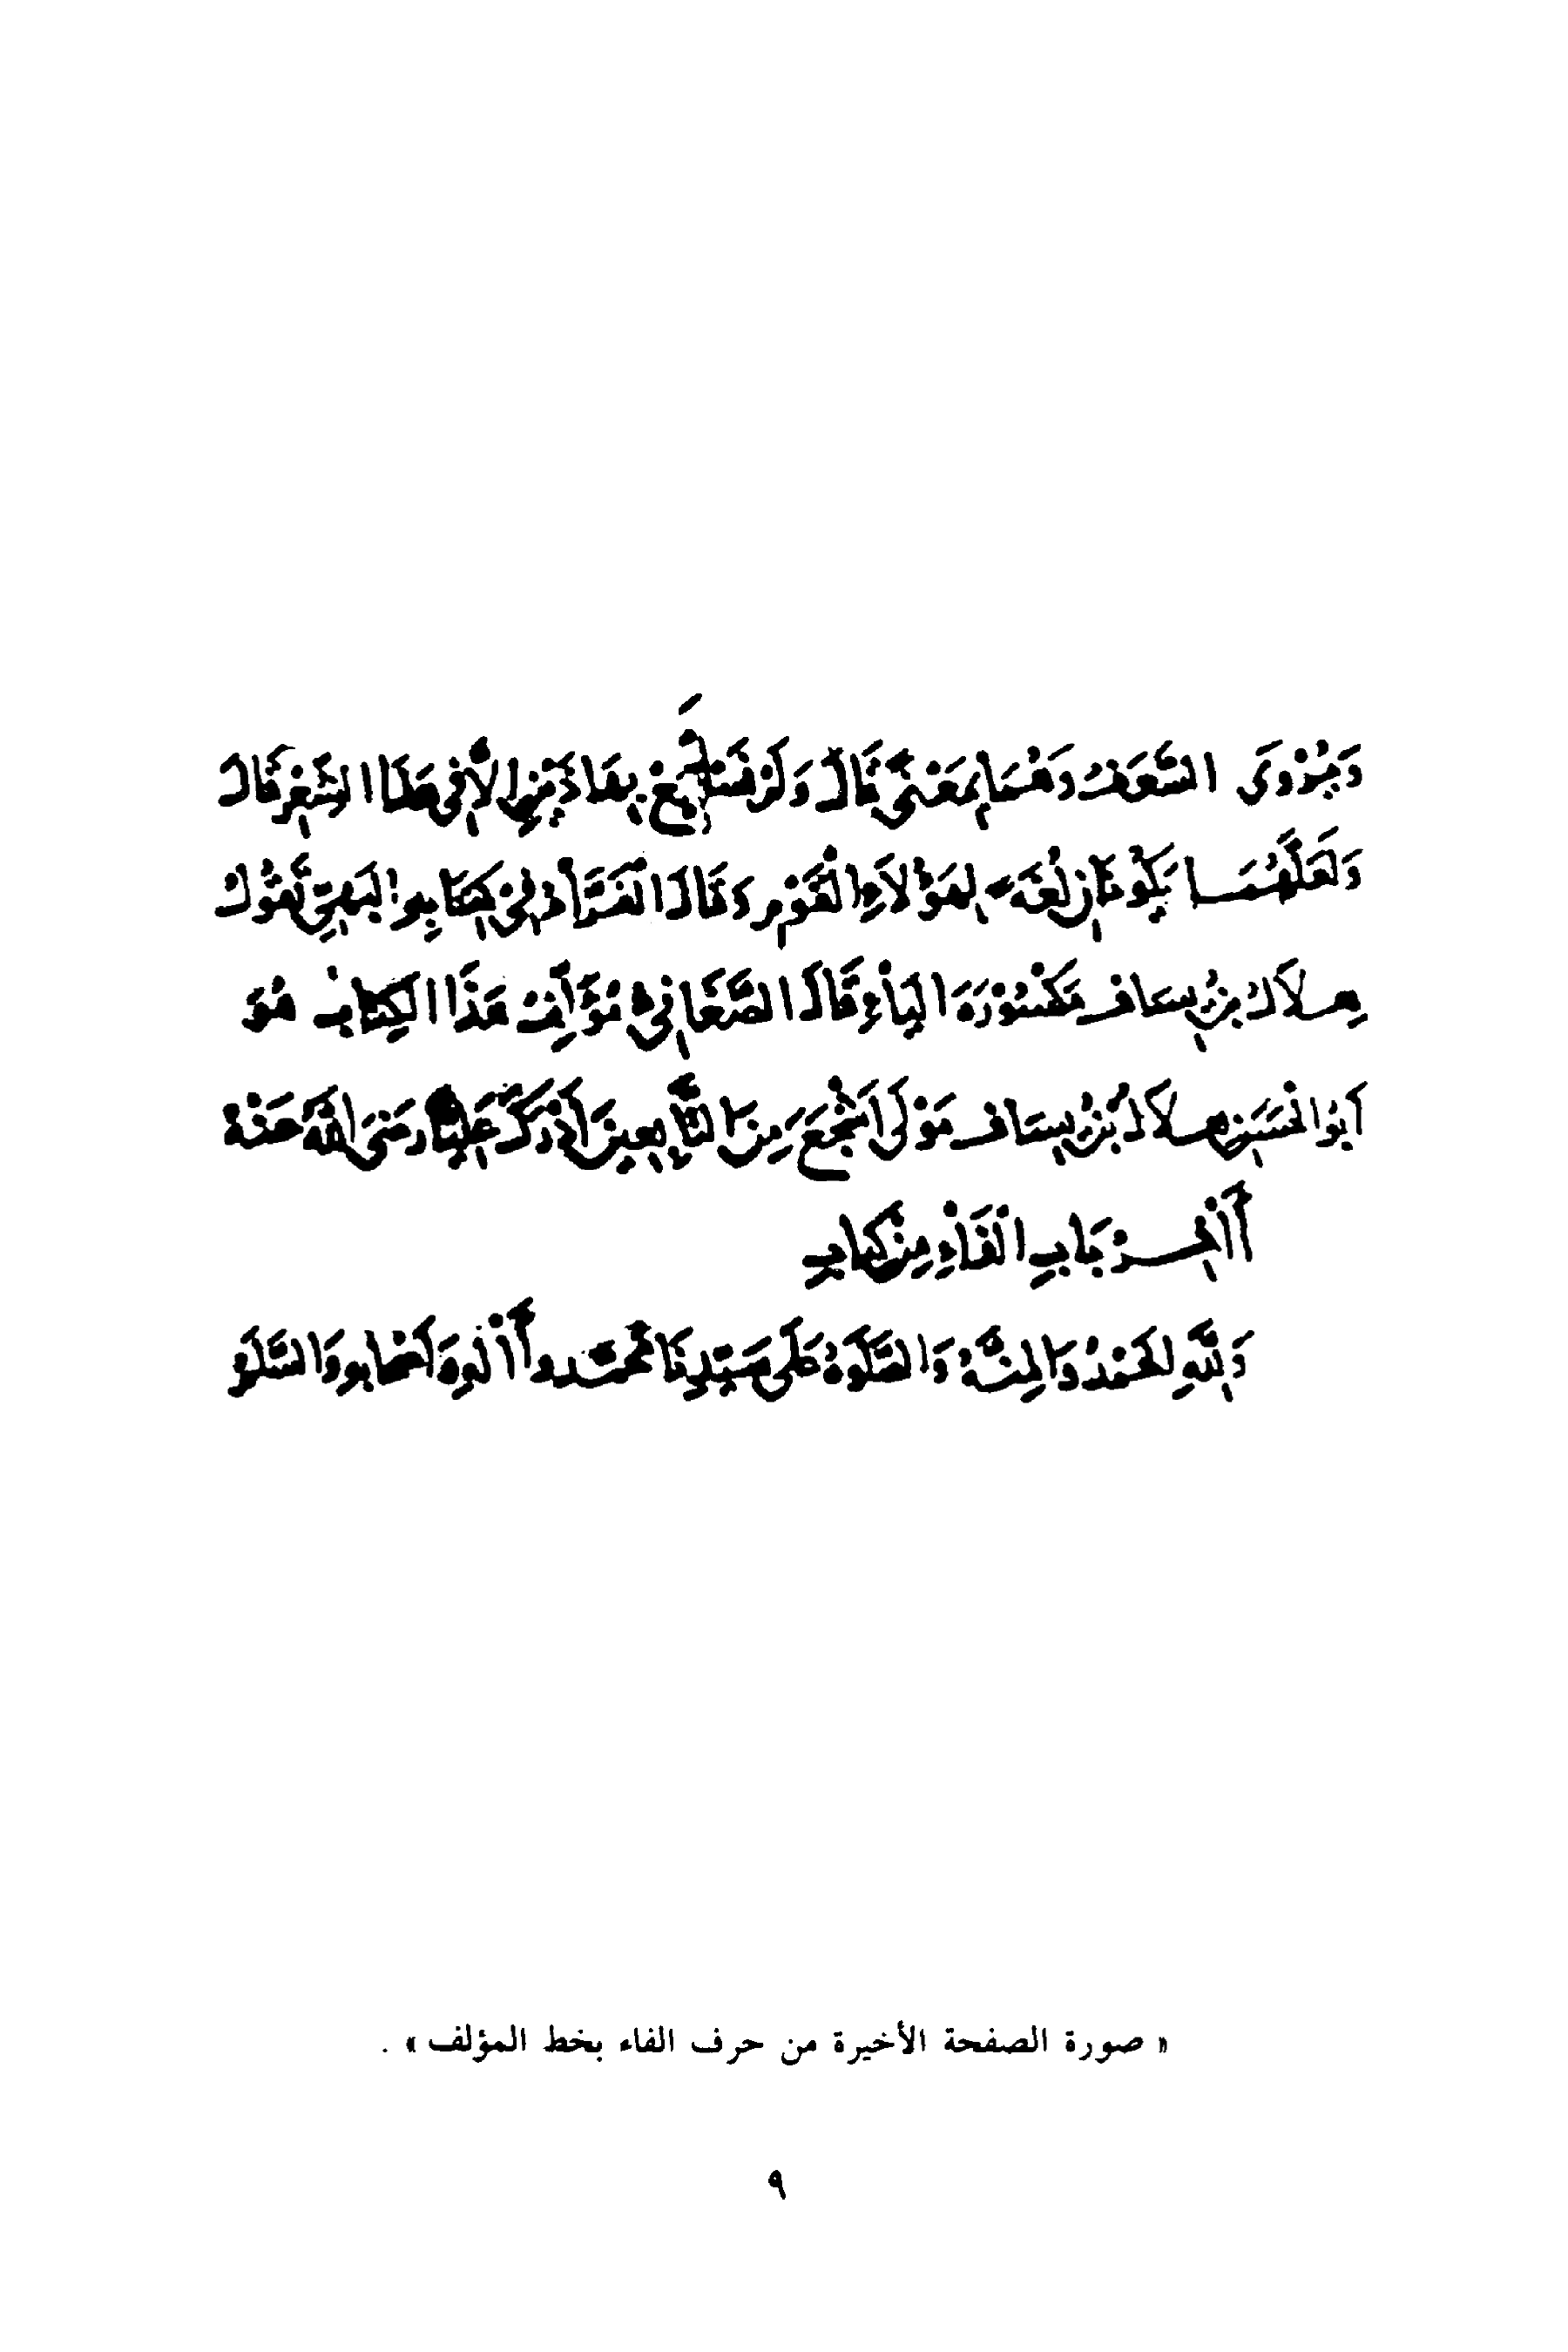 وَيُرْوَى السَّعَفُ وَهُمَا بِمَعْنًى قَالَ وَلَمْ نَسْمَعْ بِهَاذَيْنِ إِلَّا فِي هَذَا الشِّعْرِ قَالَ
وَلَعَلَّهُمَا يَكُونَانِ لُغَةً لِهَؤُلَاءِ الْقَوْمِ وَقَالَ الْفَرَّاءُ فِي كِتَابِهِ الْبَهِيِّ تَقُولُ
هِلَالُ بْنُ يِسَافٍ مَكْسُورَةَ الْيَاءِ قَالَ الصَّغَانِيُّ مُؤَلِّفُ هَذَا الْكِتَابِ هُوَ
أَبُو الْحَسَنِ هِلَالُ بْنُ يِسَافٍ مَوْلَى أَشْجَعَ مِنَ التَّابِعِينَ أَدْرَكَ عَلِيًّا رَضِيَ اللهُ عَنْهُ
آخِرُ بَابِ الْفَاءِ مِنْ كِتَابِ
وَلِلَّهِ الْحَمْدُ وَالْمِنَّةُ وَالصَّلَوةُ عَلَى سَيِّدِنَا مُحَمَّدٍ وَآلِهِ وَأَصْحَابِهِ وَالسَّلَمُ
« صورة الصفحة الأخيرة من حرف الفاء بخط المؤلف » .
٩